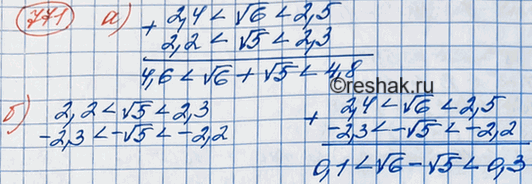 771 а) + 2,4 < √6 < 2,5
2,2 < √5 < 2,3
4,6 < √6 + √5 < 4,8
©reshak.ru
б) 2,2 < √5 < 2,3
-2,3 < -√5 < -2,2
+ 2,4 < √6 < 2,5
-2,3 < -√5 < -2,2
0,1 < √6 - √5 < 0,3